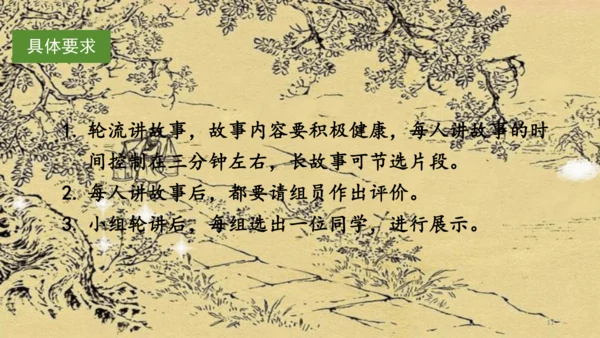 具体要求
1. 轮流讲故事，故事内容要积极健康，每人讲故事的时
间控制在三分钟左右，长故事可节选片段。
2. 每人讲故事后，都要请组员作出评价。
3. 小组轮讲后，每组选出一位同学，进行展示。